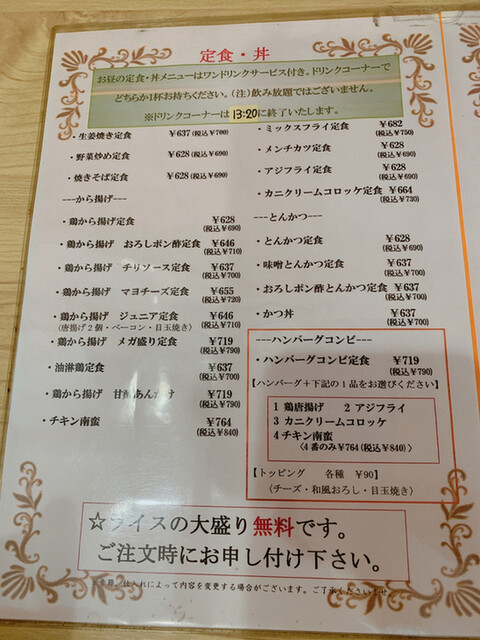 定食・丼
お昼の定食・丼メニューはワンドリンクサービス付き。ドリンクコーナーで
どちらか1杯お持ちください。（注）飲み放題ではございません。
※ドリンクコーナーは 13:20 に終了いたします。
・生姜焼き定食 ￥637（税込￥700）
・野菜炒め定食 ￥628（税込￥690）
・焼きそば定食 ￥628（税込￥690）
---から揚げ---
・鶏から揚げ定食 ￥628
（税込￥690）
・鶏から揚げ おろしポン酢定食 ￥646
（税込￥710）
・鶏から揚げ チリソース定食 ￥637
（税込￥700）
・鶏から揚げ マヨチーズ定食 ￥655
（税込￥720）
・鶏から揚げ ジュニア定食 ￥646
（唐揚げ２個・ベーコン・目玉焼き）（税込￥710）
・鶏から揚げ メガ盛り定食 ￥719
（税込￥790）
・油淋鶏定食 ￥637
（税込￥700）
・鶏から揚げ 甘酢あんかけ ￥719
（税込￥790）
・チキン南蛮 ￥764
（税込￥840）
・ミックスフライ定食 ￥682
（税込￥750）
・メンチカツ定食 ￥628
（税込￥690）
・アジフライ定食 ￥628
（税込￥690）
・カニクリームコロッケ定食 ￥664
（税込￥730）
---とんかつ---
・とんかつ定食 ￥628
（税込￥690）
・味噌とんかつ定食 ￥637
（税込￥700）
・おろしポン酢とんかつ定食 ￥637
（税込￥700）
・かつ丼 ￥637
（税込￥700）
---ハンバーグコンビ---
・ハンバーグコンビ定食 ￥719
（税込￥790）
【ハンバーグ＋下記の１品をお選びください】
1 鶏唐揚げ 2 アジフライ
3 カニクリームコロッケ
4 チキン南蛮
〈4番のみ￥764（税込￥840）〉
【トッピング 各種 ￥90】
（チーズ・和風おろし・目玉焼き）
☆ライスの大盛り無料です。
ご注文時にお申し付け下さい。
仕入れによって内容を変更する場合がございます。ご了承くださいませ